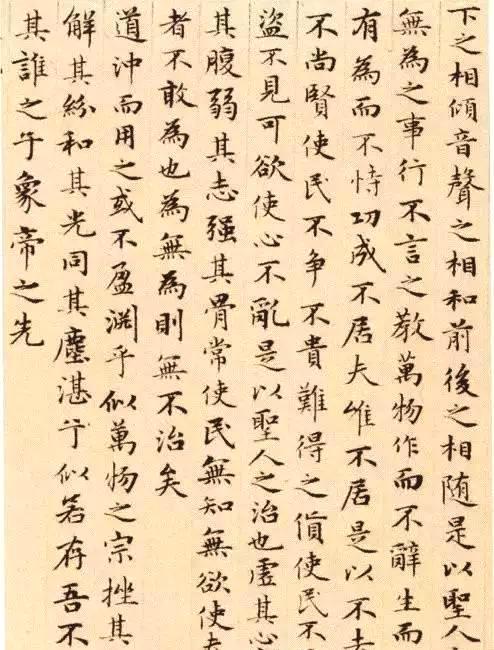 下之相傾音聲之相和前後之相随是以聖人
無為之事行不言之教萬物作而不辭生而
有為而不恃功成不居夫惟不居是以不去
不尚賢使民不争不貴難得之貨使民不
盜不見可欲使心不亂是以聖人之治也虛其心
其腹弱其志强其骨常使民無知無欲使夫
者不敢為也為無為則無不治矣
道沖而用之或不盈淵乎似萬物之宗挫其
解其紛和其光同其塵湛乎似若存吾不
其誰之子象帝之先